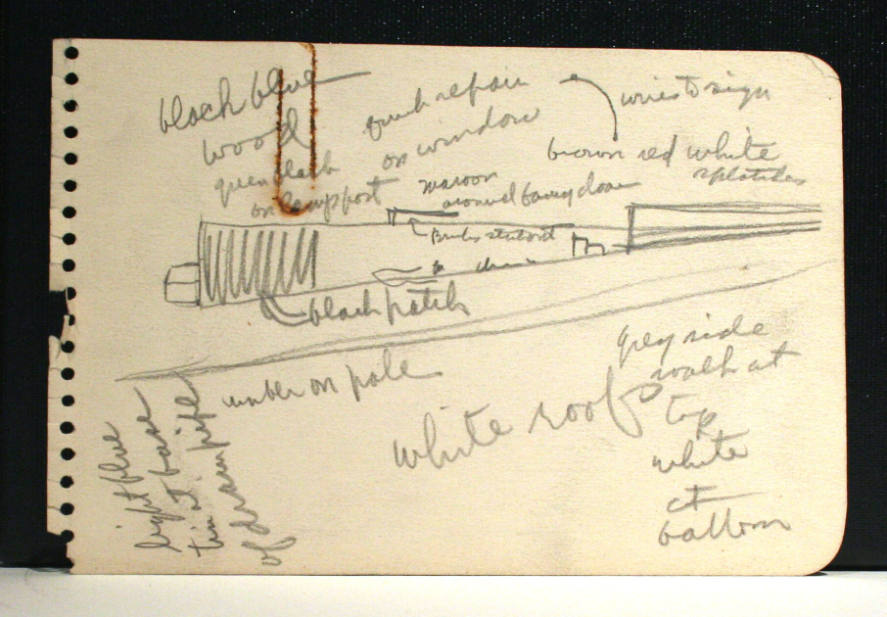 black blue
wood
green black
on lamp post
repair
on window
wires to sign
brown red white
splotches
maroon
around door
black patch
number on pole
white roof
grey side
walk at
top
white
at
bottom
light blue
light base
tin at pipe
of drain